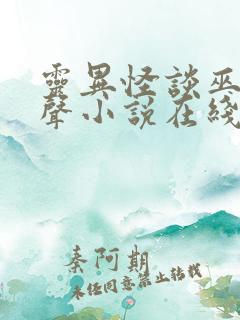 靈異怪談巫
聲小說在綫
秦阿期
未经同意禁止转载